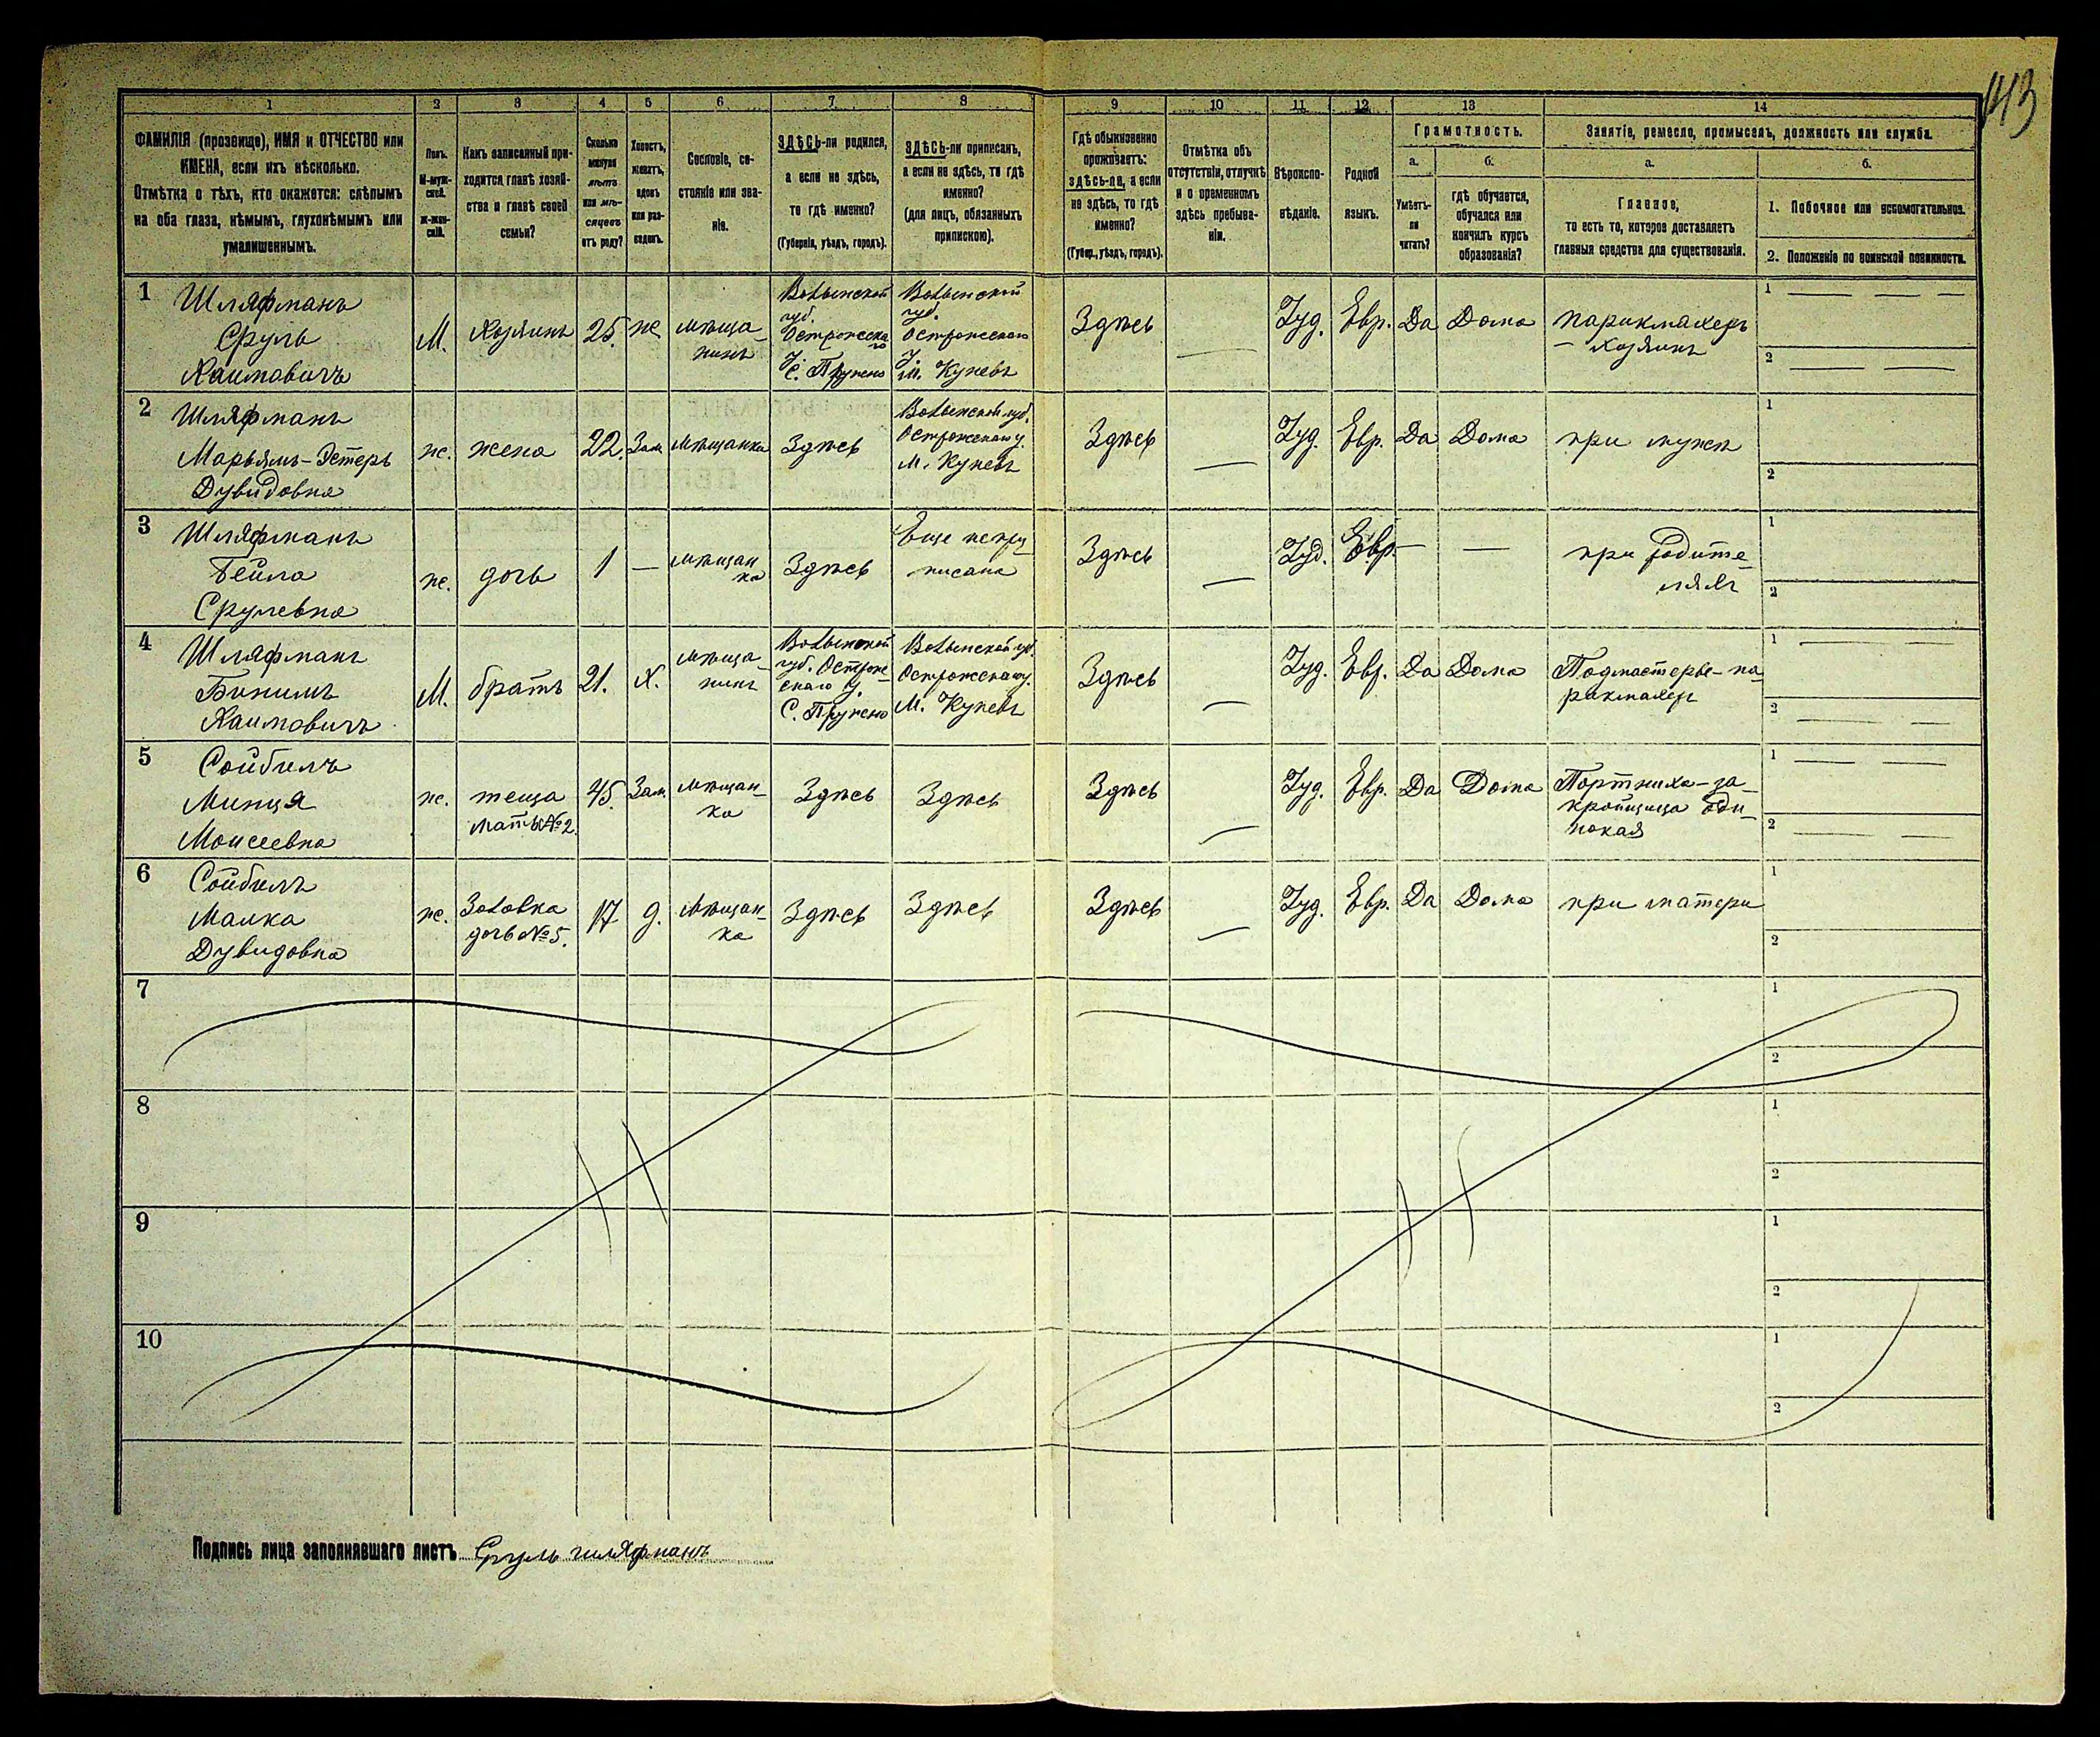 143
1 2 3 4 5 6 7 8 9 10 11 12 13 14
ФАМИЛІЯ (прозвище), ИМЯ и ОТЧЕСТВО или
ИМЕНА, если ихъ нѣсколько.
Отмѣтка о тѣхъ, кто окажется: слѣпымъ
на оба глаза, нѣмымъ, глухонѣмымъ или
умалишеннымъ.
Полъ.
М-муж-
ской.
Ж-жен-
скій.
Какъ записанный при-
ходится главѣ хозяй-
ства и главѣ своей
семьи?
Сколько
минуло
лѣтъ
или мѣ-
сяцевъ
отъ роду?
Холостъ,
женатъ,
вдовъ
или раз-
веденъ.
Сословіе, со-
стояніе или зва-
ніе.
ЗДѢСЬ-ли родился,
а если не здѣсь,
то гдѣ именно?
(Губернія, уѣздъ, городъ).
ЗДѢСЬ-ли приписанъ,
а если не здѣсь, то гдѣ
именно?
(для лицъ, обязанныхъ
припискою).
Гдѣ обыкновенно
проживаетъ:
здѣсь-ли, а если
не здѣсь, то гдѣ
именно?
(Губер., уѣздъ, городъ).
Отмѣтка объ
отсутствіи, отлучкѣ
и о временномъ
здѣсь пребыва-
ніи.
Вѣроиспо-
вѣданіе.
Родной
языкъ.
Грамотность.
а.
Умѣетъ-
ли
читать?
б.
гдѣ обучается,
обучался или
кончилъ курсъ
образованія?
Занятіе, ремесло, промыселъ, должность или служба.
а.
Главное,
то есть то, которое доставляетъ
главныя средства для существованія.
б.
1. Побочное или вспомогательное.
2. Положеніе по воинской повинности.
1
Шляфманъ
Сруль
Хаимовичъ
М.
Хозяинъ
25.
ж.
мѣща-
нинъ
Волынской
губ.
Острожска-
го
У.
С. Пружено
Волынской
губ.
Острожскаго
У.
М. Куневъ
Здѣсь
—
Іуд.
Евр.
Да
Дома
парикмахеръ
— хозяинъ
1 — — —
2 — —
2
Шляфманъ
Марьямъ-Эстеръ
Дувидовна
ж.
жена
22.
Зам.
мѣщанка
Здѣсь
Волынской губ.
Острожскаго у.
М. Куневъ
Здѣсь
—
Іуд.
Евр.
Да
Дома
при мужѣ
1
2
3
Шляфманъ
Бейла
Срулевна
ж.
дочь
1
—
мѣщан
ка
Здѣсь
Еще непри-
писана
Здѣсь
—
Іуд.
Евр.
—
—
при родите-
ляхъ
1
2
4
Шляфманъ
Бинимъ
Хаимовичъ
М.
братъ
21.
Х.
мѣща-
нинъ
Волынской
губ. Острож-
скаго У.
С. Пружено
Волынской губ.
Острожскаго у.
М. Куневъ
Здѣсь
—
Іуд.
Евр.
Да
Дома
Подмастерье-па-
рикмахеръ
1 — —
2 — —
5
Сойбель
Минця
Моисеевна
ж.
теща
мать №2.
45.
Зам.
мѣщан-
ка
Здѣсь
Здѣсь
Здѣсь
—
Іуд.
Евр.
Да
Дома
Портниха-за-
кройщица оди-
нокая
1 — —
2 — —
6
Сойбель
Малка
Дувидовна
ж.
Золовка
дочь №5.
17
д.
мѣщан-
ка
Здѣсь
Здѣсь
Здѣсь
—
Іуд.
Евр.
Да
Дома
при матери
1
2
7
1
2
8
1
2
9
1
2
10
1
2
Подпись лица заполнявшаго листъ Сруль шляфманъ